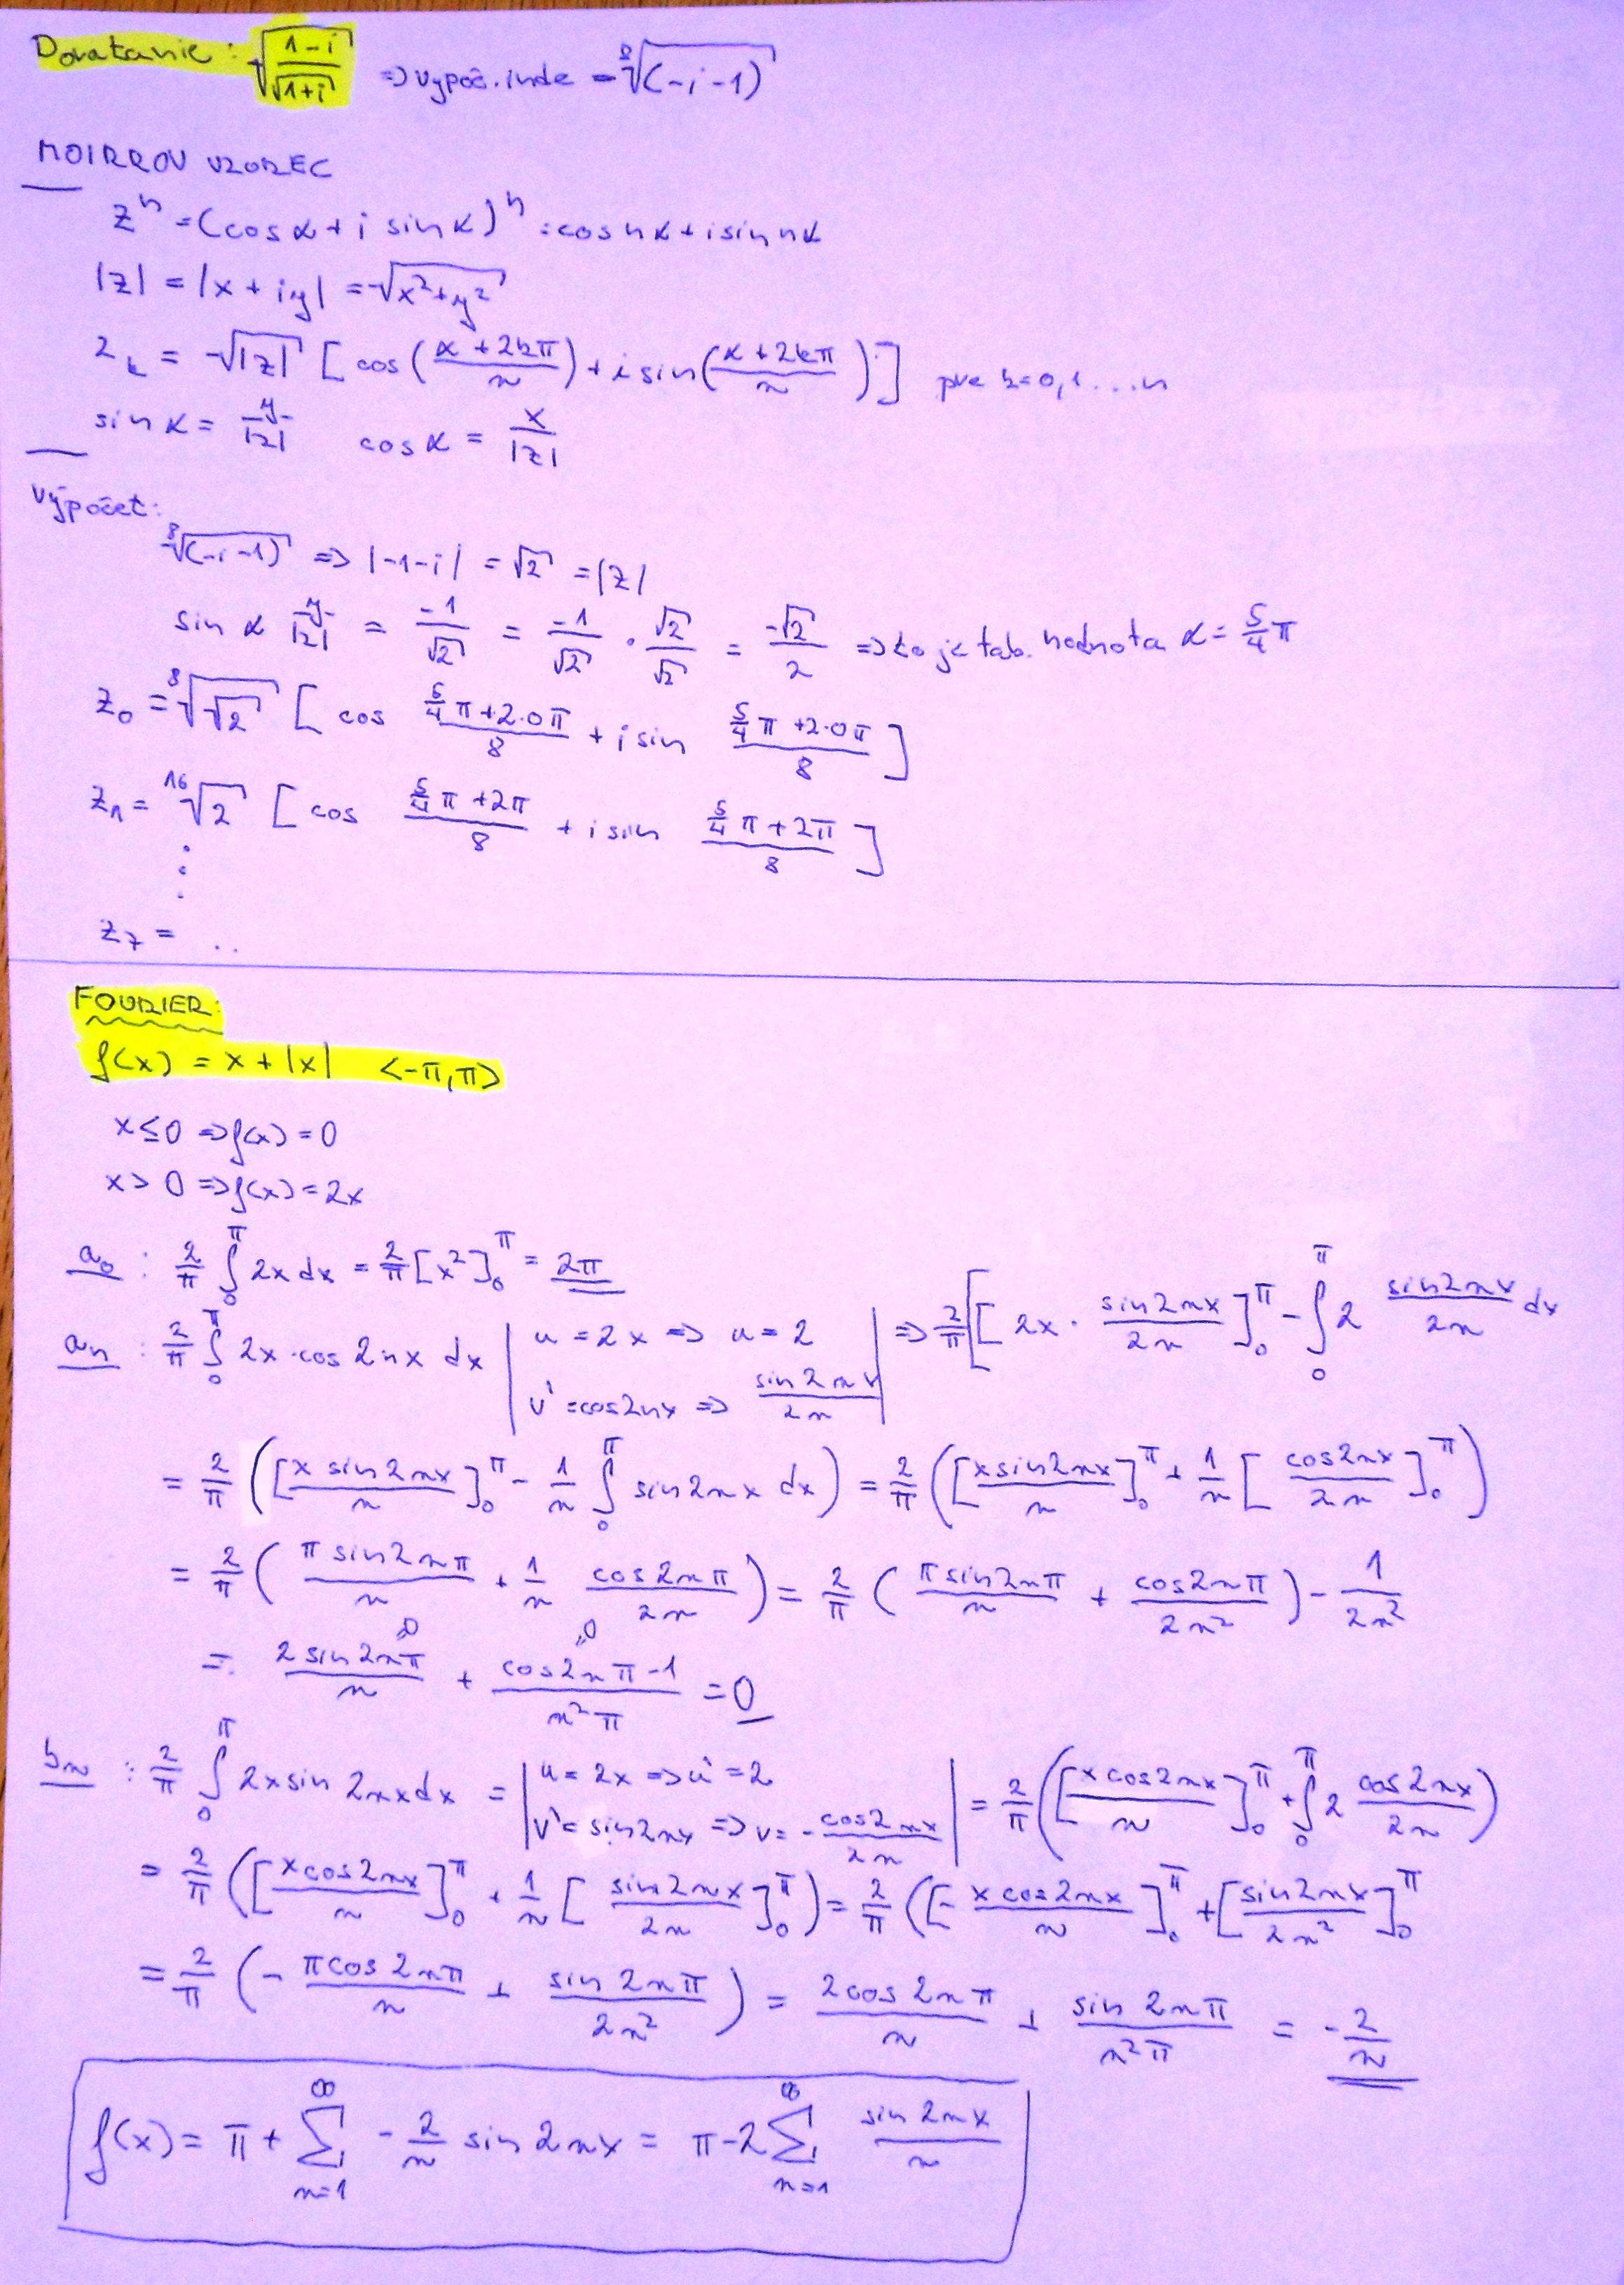 Doratanie: √((1-i)/√(1+i)) => vypoč. inde = ⁸√(-i-1)
MOIRROV VZOREC
zⁿ = (cos α + i sin α)ⁿ = cos nα + i sin nα
|z| = |x + iy| = √(x²+y²)
z_k = √|z| [cos((α+2kπ)/n) + i sin((α+2kπ)/n)] pre k=0,1...n
sin α = y/|z| cos α = x/|z|
Výpočet:
⁸√(-i-1) => |-1-i| = √2 = |z|
sin α y/|z| = -1/√2 = -1/√2 · √2/√2 = -√2/2 => to je tab. hodnota α = 5/4 π
z₀ = ⁸√√2 [cos (5/4π+2·0π)/8 + i sin (5/4π+2·0π)/8]
z₁ = ¹⁶√2 [cos (5/4π+2π)/8 + i sin (5/4π+2π)/8]
⋮
z₇ = ..
FOURIER:
f(x) = x + |x| <-π,π>
x≤0 => f(x) = 0
x>0 => f(x) = 2x
a₀ : 2/π ∫₀^π 2x dx = 2/π [x²]₀^π = 2π
aₙ : 2/π ∫₀^π 2x·cos 2nx dx | u = 2x => u = 2 v' = cos2nx => sin2nx/2n | => 2/π [[2x · sin2nx/2n]₀^π - ∫₀^π 2 sin2nx/2n dx
= 2/π ([x sin2nx/n]₀^π - 1/n ∫₀^π sin2nx dx) = 2/π ([x sin2nx/n]₀^π + 1/n [cos2nx/2n]₀^π)
= 2/π (π sin2nπ/n + 1/n cos2nπ/2n) = 2/π (π sin2nπ/n + cos2nπ/2n²) - 1/2n²
= 2 sin2nπ/n + (cos2nπ-1)/n²π = 0
bₙ : 2/π ∫₀^π 2x sin 2nx dx = | u = 2x => u' = 2 v' = sin2nx => v = -cos2nx/2n | = 2/π ([x cos2nx/n]₀^π + ∫₀^π 2 cos2nx/2n)
= 2/π ([x cos2nx/n]₀^π + 1/n [sin2nx/2n]₀^π) = 2/π ([- x cos2nx/n]₀^π + [sin2nx/2n²]₀^π
= 2/π (- π cos 2nπ/n + sin 2nπ/2n²) = 2 cos 2nπ/n + sin 2nπ/n²π = - 2/n
f(x) = π + ∑_{n=1}^∞ - 2/n sin 2nx = π - 2 ∑_{n=1}^∞ sin 2nx/n